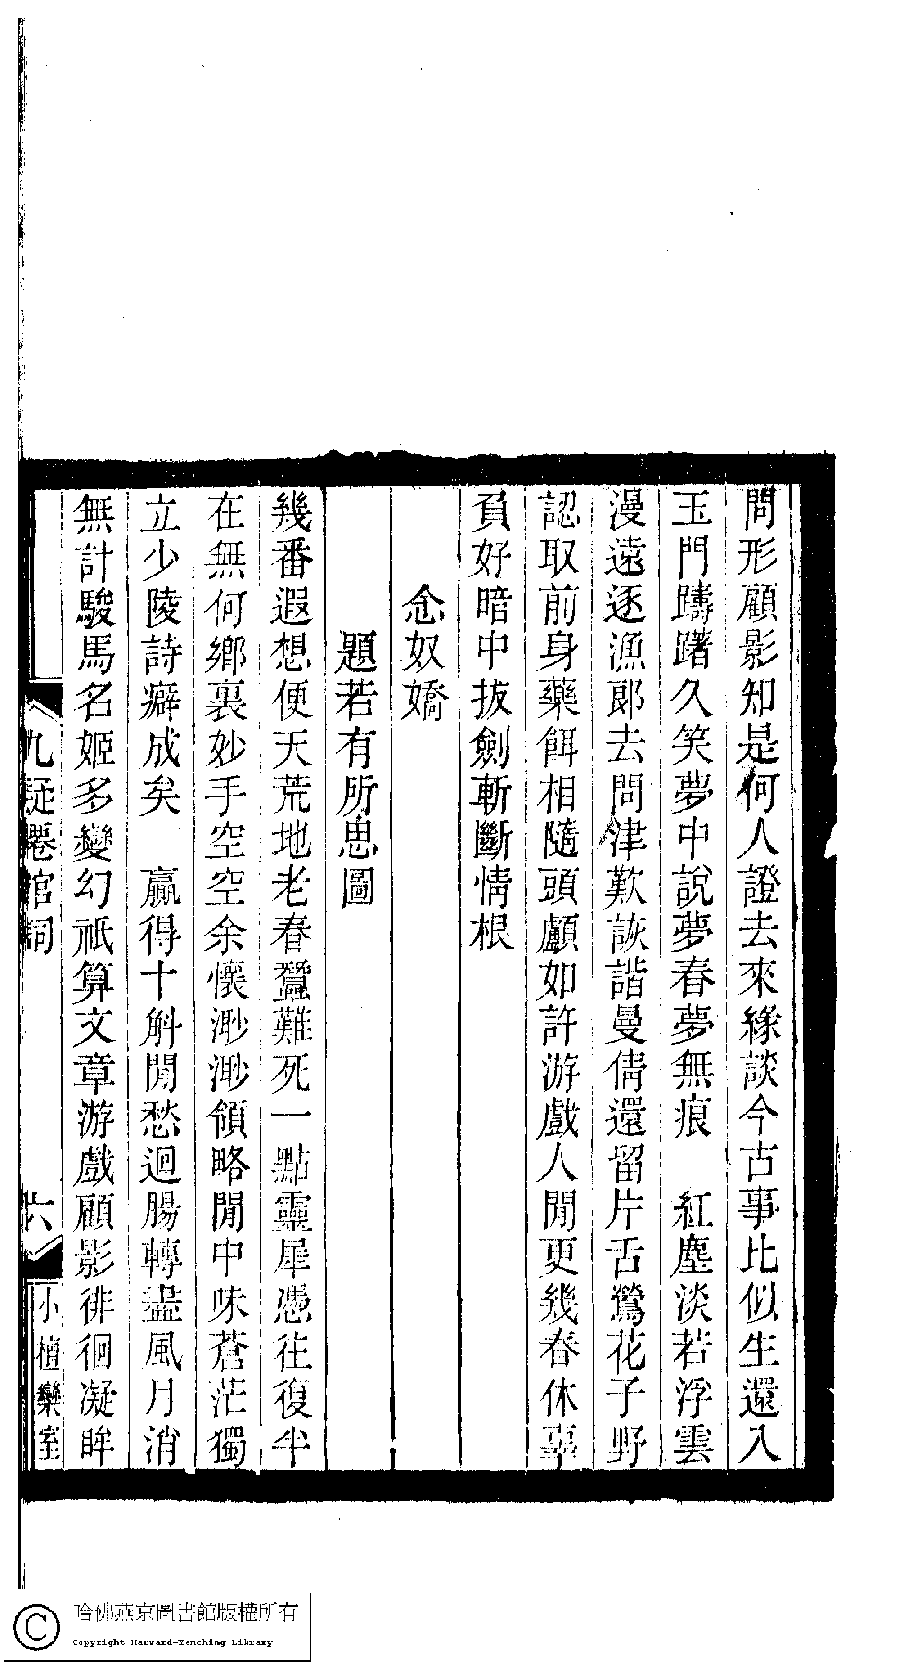 問形顧影知是何人證去來緣談今古事比似生還入
玉門躊躇久笑夢中說夢春夢無痕　紅塵淡若浮雲
漫遠逐漁郎去問津歎詼諧曼倩還留片舌鶯花子野
認取前身藥餌相隨頭顱如許游戲人閒更幾春休辜
負好暗中拔劍斬斷情根
念奴嬌
題若有所思圖
幾番遐想便天荒地老春蠶難死一點靈犀憑往復半
在無何鄉裏妙手空空余懷渺渺領略閒中味蒼茫獨
立少陵詩癖成矣　贏得十斛閒愁迴腸轉盡風月消
無計駿馬名姬多變幻祇算文章游戲顧影徘徊凝眸
九疑僊館詞
六
小檀欒室
哈佛燕京圖書館版權所有
Copyright Harvard-Yenching Library